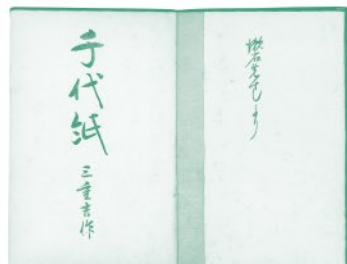 漱石先生より
千代紙
三重吉作